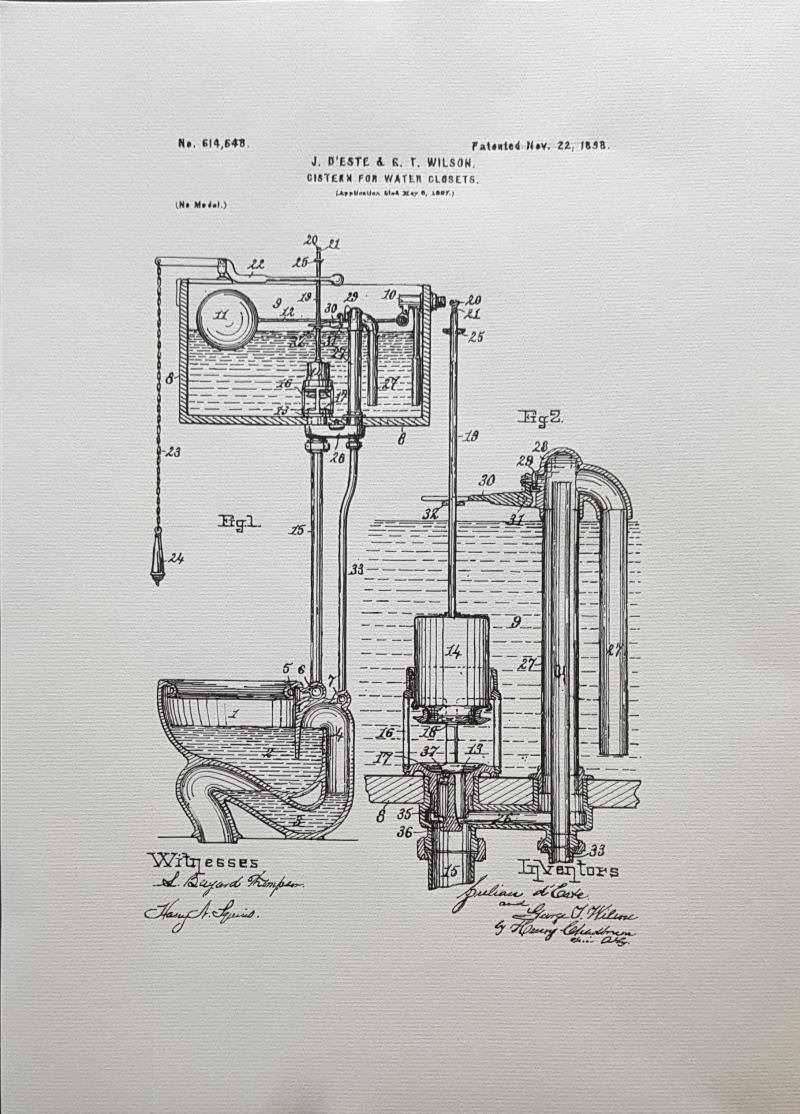 No. 614,648.
Patented Nov. 22, 1898.
J. D'ESTE & G. T. WILSON.
CISTERN FOR WATER CLOSETS.
(Application filed May 6, 1897.)
(No Model.)
20 21
25
22
29
10
9 19
11 12 30
20
21
32 31
25
27
16 17
27
8
13
8
26
23
19
Fig 2.
28
29
30
32 31
Fig 1.
15
24
33
9
14
27
27
5 6 7
1
4
2
16 18
37 13
17
3
35
8
26
36
33
15
Witnesses
S. Bayard Thompson.
Harry A. Squires.
Inventors
Julian d'Este
and
George T. Wilson
by Henry Chadbourn
their Atty.